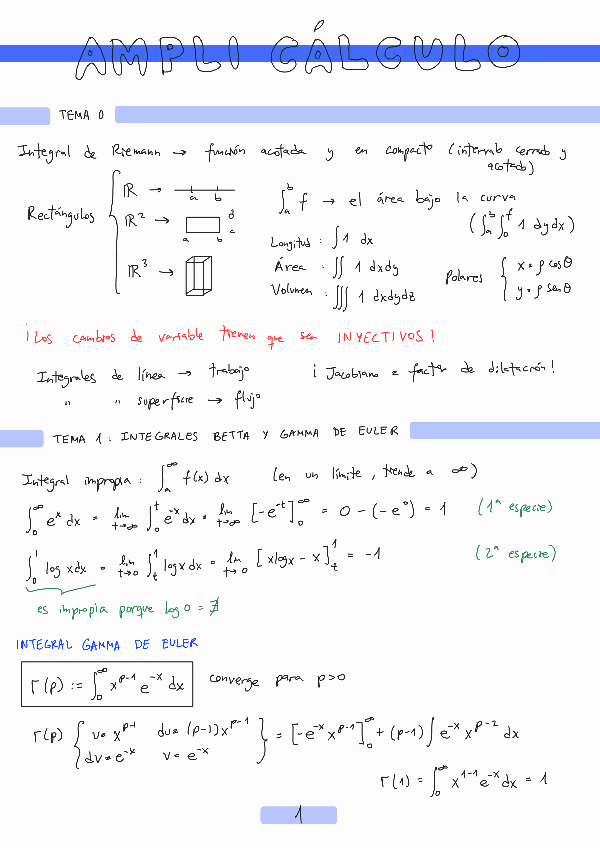 AMPLI CÁLCULO
TEMA 0
Integral de Riemann → función acotada y en compacto (intervalo cerrado y
acotado)
Rectángulos { ℝ → a b
ℝ² → a b c d
ℝ³ →
∫_a^b f → el área bajo la curva
(∫_a^b ∫_0^f 1 dy dx)
Longitud : ∫ 1 dx
Área : ∬ 1 dxdy
Volumen : ∭ 1 dxdydz
Polares { x = ρ cosθ
y = ρ senθ
¡Los cambios de variable tienen que ser INYECTIVOS!
Integrales de línea → trabajo
¡ Jacobiano = factor de dilatación!
" " superficie → flujo
TEMA 1: INTEGRALES BETTA Y GAMMA DE EULER
Integral impropia : ∫_a^∞ f(x) dx (en un límite, tiende a ∞)
∫_0^∞ e^x dx = lim_{t→∞} ∫_0^t e^-x dx = lim_{t→∞} [-e^-t]_0^∞ = 0 - (-e^0) = 1 (1ª especie)
∫_0^1 log x dx = lim_{t→0} ∫_t^1 log x dx = lim_{t→0} [x log x - x]_t^1 = -1 (2ª especie)
es impropia porque log 0 = ∄
INTEGRAL GAMMA DE EULER
Γ(p) := ∫_0^∞ x^{p-1} e^{-x} dx converge para p>0
Γ(p) { u = x^{p-1} du = (p-1)x^{p-1}
dv = e^-x v = e^-x } = [-e^-x x^{p-1}]_0^∞ + (p-1) ∫ e^-x x^{p-2} dx
Γ(1) = ∫_0^∞ x^{1-1} e^-x dx = 1
1